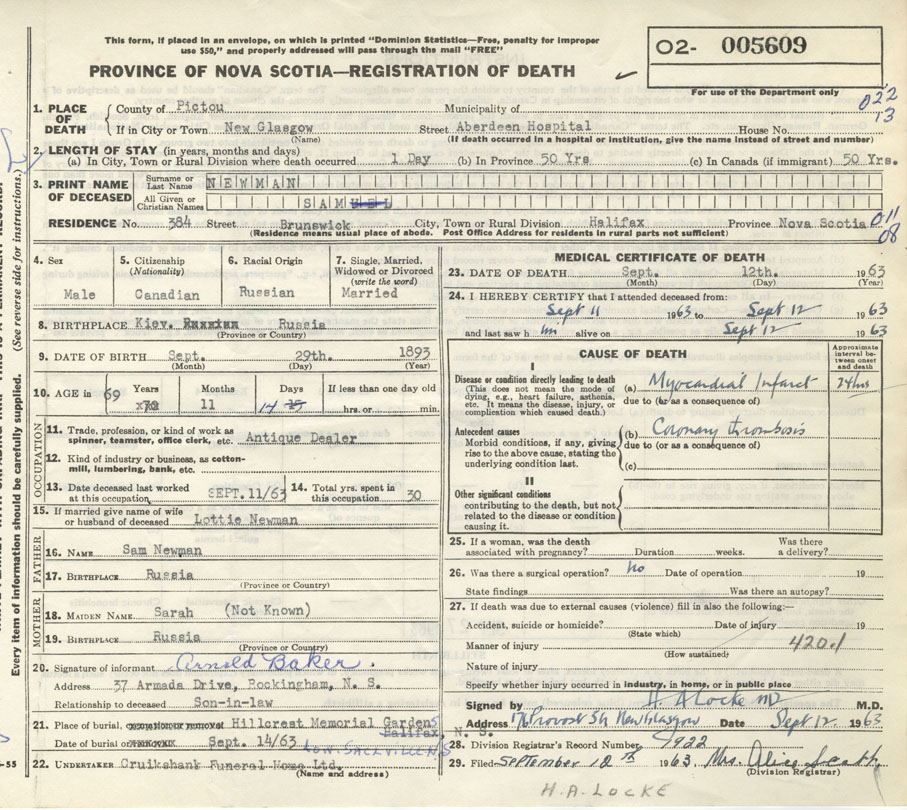 This form, if placed in an envelope, on which is printed "Dominion Statistics—Free, penalty for improper
use $50," and properly addressed will pass through the mail "FREE"
O2- 005609
For use of the Department only
PROVINCE OF NOVA SCOTIA—REGISTRATION OF DEATH
022
13
1. PLACE OF DEATH
County of Pictou Municipality of
If in City or Town New Glasgow Street Aberdeen Hospital House No.
(Name) (If death occurred in a hospital or institution, give the name instead of street and number)
2. LENGTH OF STAY (in years, months and days)
(a) In City, Town or Rural Division where death occurred 1 Day (b) In Province 50 Yrs (c) In Canada (if immigrant) 50 Yrs.
3. PRINT NAME OF DECEASED
Surname or Last Name NEWMAN
All Given or Christian Names SAMUEL
RESIDENCE No. 384 Street Brunswick City, Town or Rural Division Halifax Province Nova Scotia 011
08
(Residence means usual place of abode. Post Office Address for residents in rural parts not sufficient)
4. Sex
Male
5. Citizenship
(Nationality)
Canadian
6. Racial Origin
Russian
7. Single, Married,
Widowed or Divorced
(write the word)
Married
8. BIRTHPLACE Kiev. Russia
(Province or Country)
9. DATE OF BIRTH Sept. 29th. 1893
(Month) (Day) (Year)
10. AGE in 69 Years Months 11 Days 14 If less than one day old
hrs. or min.
OCCUPATION
11. Trade, profession, or kind of work as
spinner, teamster, office clerk, etc. Antique Dealer
12. Kind of industry or business, as cotton-
mill, lumbering, bank, etc.
13. Date deceased last worked
at this occupation SEPT.11/63
14. Total yrs. spent in
this occupation 30
15. If married give name of wife
or husband of deceased Lottie Newman
FATHER
16. NAME Sam Newman
17. BIRTHPLACE Russia
(Province or Country)
MOTHER
18. MAIDEN NAME Sarah (Not Known)
19. BIRTHPLACE Russia
(Province or Country)
20. Signature of informant Arnold Baker.
Address 37 Armada Drive, Rockingham, N. S.
Relationship to deceased Son-in-law
21. Place of burial, Hillcrest Memorial Gardens
Halifax, N. S.
Date of burial Sept. 14/63 LOW. SACKVILLE N.S
22. UNDERTAKER Cruikshank Funeral Home Ltd.
(Name and address)
MEDICAL CERTIFICATE OF DEATH
23. DATE OF DEATH Sept. 12th. 1963
(Month) (Day) (Year)
24. I HEREBY CERTIFY that I attended deceased from:
Sept 11 1963 to Sept 12 1963
and last saw h im alive on Sept 12 1963
CAUSE OF DEATH
Approximate
interval be-
tween onset
and death
I
Disease or condition directly leading to death
(This does not mean the mode of
dying, e.g., heart failure, asthenia,
etc. It means the disease, injury, or
complication which caused death.)
(a) Myocardial Infarct 24hrs
due to (or as a consequence of)
Antecedent causes
Morbid conditions, if any, giving
rise to the above cause, stating the
underlying condition last.
(b) Coronary thrombosis
due to (or as a consequence of)
(c)
II
Other significant conditions
contributing to the death, but not
related to the disease or condition
causing it.
25. If a woman, was the death Was there
associated with pregnancy? Duration weeks. a delivery?
26. Was there a surgical operation? no Date of operation 19
State findings Was there an autopsy?
27. If death was due to external causes (violence) fill in also the following:—
Accident, suicide or homicide? Date of injury 19
(State which)
Manner of injury 420.1
(How sustained)
Nature of injury
Specify whether injury occurred in industry, in home, or in public place
Signed by H. A Locke MD M.D.
Address Provost St. New Glasgow Date Sept 12 1963
28. Division Registrar's Record Number 9922
29. Filed September 12th 1963. Mrs. Alice Scott
(Division Registrar)
H.A. LOCKE
(See reverse side for instructions.)
Every item of information should be carefully supplied.
-55